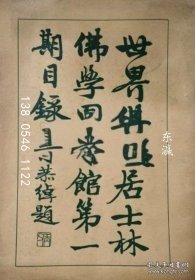 世界佛教居士林
佛學圖書館第一
期目錄
恭綽題
138 0546 1122
东瀛